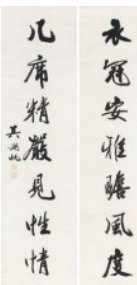 衣冠安雅瞻風度
几席精嚴見性情
吳湖帆